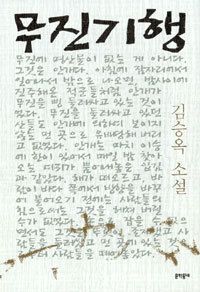 무진기행
무진에 명산물이 없는 게 아니다.
그것은 안개다. 아침에 잠자리에서
일어나서 밖으로 나오면, 밤사이에
진주해온 적군들처럼 안개가
무진을 뺑 둘러싸고 있는 것이
었다. 무진을 둘러싸고 있던
산들도 안개에 의하여 보이지
않는 먼 곳으로 유배당해버리
고 없었다. 안개는 마치 이승
에 한이 있어서 매일 밤 찾아
오는 여귀가 뿜어내놓은 입김
과 같았다. 해가 떠오르고, 바
람이 바다 쪽에서 방향을 바꾸
어 불어오기 전에는 사람들의
힘으로써는 그것을 헤쳐버릴
수가 없었다.
김승옥 소설
문학동네